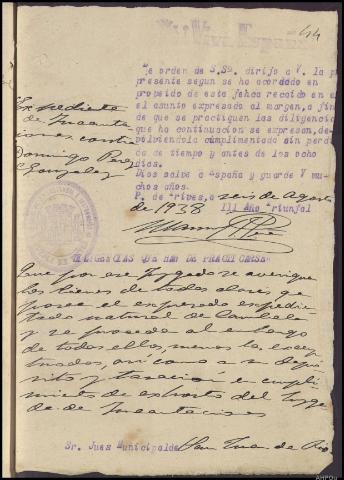 44
De orden de S.Sª. dirijo a V. la p
presente segun se ha acordado en
propeido de esta fehca recaido en e
el asunto expresado al margen, a fin
de que se practiquen las diligencia
que ha continuacion se expresan, de-
volviendolo cumplimentado sin perd
da de tiempo y antes de los ocho
dias.
Dios salve a España y guarde V mu
chos años.
P. de Trives, a seis de Agosto
de 1938 III Año Triunfal
Expediente
de Incauta
ciones contra
Domingo
Gonzalez
DILIGENCIAS QUE HAN DE PRACTICARSE
Que por ese Juzgado se averigue
los bienes de todas clases, que
posee el expresado expedien
tado natural de
y se proceda al embargo
de todos ellos, menos los excep
tuados, asi como a su depo
sito y tasacion en cumpli
miento de exhorto del Juzga
do de Incautaciones
Sr. Juez Municipal de San Juan de Rio
AHPOu